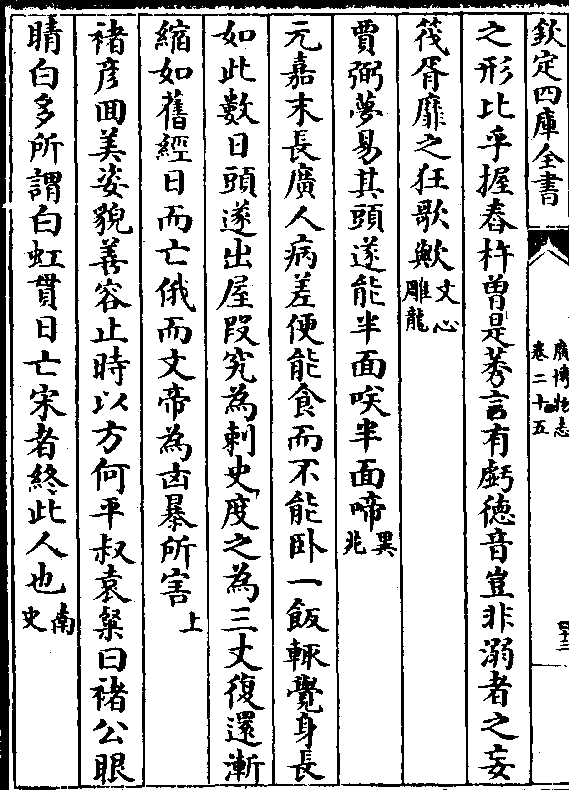 欽定四庫全書
廣博物志
卷二十五
之形比乎握舂杵曽是莠言有虧德音豈非溺者之妄
筏胥靡之狂歌歟文心雕龍
賈弼夢易其頭遂能半面咲半面啼異兆
元嘉末長廣人病差便能食而不能卧一飯輒覺身長
如此數日頭遂出屋叚究為刺史度之為三丈復還漸
縮如舊經日而亡俄而文帝為凶暴所害上
褚彦回美姿貌善容止時以方何平叔袁粲曰褚公眼
睛白多所謂白虹貫日亡宋者終此人也南史